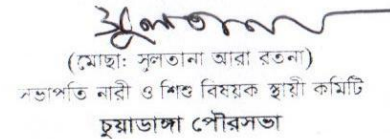 সুলতানা
(মোছাঃ সুলতানা আরা রতনা)
সভাপতি নারী ও শিশু বিষয়ক স্থায়ী কমিটি
চুয়াডাঙ্গা পৌরসভা